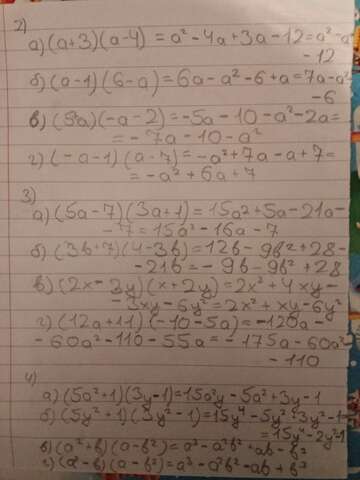 2)
а) (a+3)(a-4) = a² - 4a + 3a - 12 = a² - a
- 12
б) (a-1)(6-a) = 6a - a² - 6 + a = 7a - a²
- 6
в) (5+a)(-a-2) = -5a - 10 - a² - 2a =
= - 7a - 10 - a²
г) (-a-1)(a-7) = -a² + 7a - a + 7 =
= - a² + 6a + 7
3)
а) (5a-7)(3a+1) = 15a² + 5a - 21a -
- 7 = 15a² - 16a - 7
б) (3b+7)(4-3b) = 12b - 9b² + 28 -
- 21b = - 9b - 9b² + 28
в) (2x-3y)(x+2y) = 2x² + 4xy -
- 3xy - 6y² = 2x² + xy - 6y²
г) (12a+11)(-10-5a) = -120a -
- 60a² - 110 - 55a = - 175a - 60a²
- 110
4)
а) (5a²+1)(3y-1) = 15a²y - 5a² + 3y - 1
б) (5y²+1)(3y²-1) = 15y⁴ - 5y² + 3y² - 1
= 15y⁴ - 2y² - 1
в) (a²+b)(a-b²) = a³ - a²b² + ab - b³
г) (a²-b)(a-b²) = a³ - a²b² - ab + b³